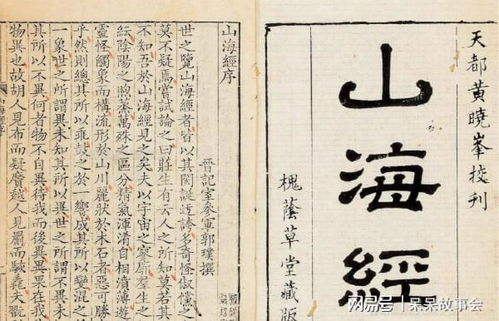 天都黄曉峯挍刊
山海經
槐蔭草堂藏版
山海經序
晉記室參軍郭璞撰
世之覽山海經者皆以其閎誕迂誇多奇怪俶儻之
莫不疑焉嘗試論之曰莊生有云人之所知莫若其
不知吾於山海經見之矣夫以宇宙之寥廓羣生之
紜陰陽之煦蒸萬殊之區分精氣渾淆自相濆薄遊
靈怪觸象而構流形於山川麗狀於木石者惡可勝
乎然則總其所以乖鼓之於一響成其所以變混之
一象世之所謂異未知其所以異世之所謂不異未
其所以不異何者物不自異待我而後異異果在我
物異也故胡人見布而疑黂越人見罽而駭毳夫翫
网易号 | 呆呆故事会